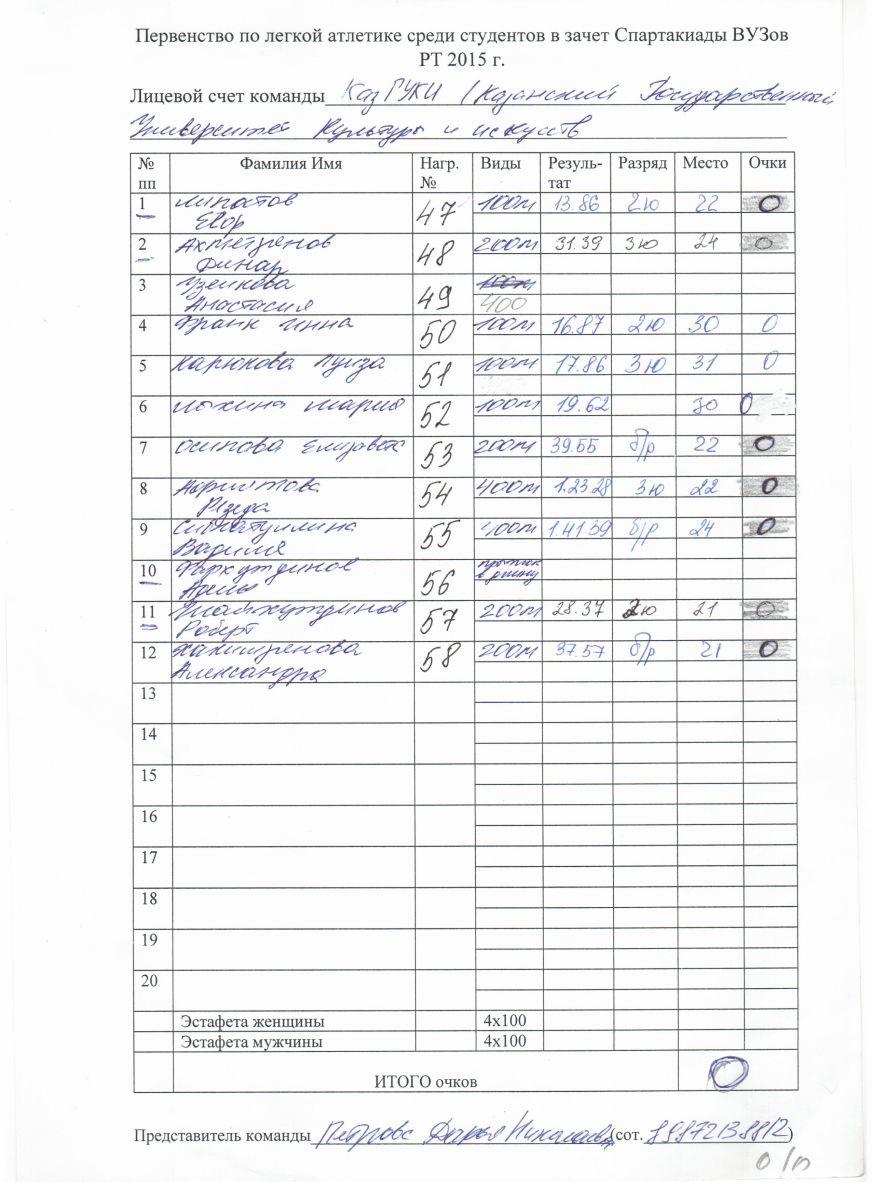 Первенство по легкой атлетике среди студентов в зачет Спартакиады ВУЗов
РТ 2015 г.
Лицевой счет команды КазГУКИ (Казанский Государственный
Университет Культуры и искусств
№ пп Фамилия Имя Нагр. № Виды Резуль-тат Разряд Место Очки
1 Липатов Егор 47 100м 13.86 2ю 22 0
2 Ахметзянов Динар 48 200м 31.39 3ю 24 0
3 Узенкова Анастасия 49 100м 400
4 Франк Инна 50 100м 16.87 2ю 30 0
5 Карюкова Луиза 51 100м 17.86 3ю 31 0
6 Мария 52 100м 19.62 30 0
7 Осипова 53 200м 39.55 б/р 22 0
8 54 400м 1.23.28 3ю 22 0
9 55 400м 1.41.39 б/р 24 0
10 56 в длину
11 Роберт 57 200м 28.37 2ю 21 0
12 Александра 58 200м 37.57 б/р 21 0
13
14
15
16
17
18
19
20
Эстафета женщины 4х100
Эстафета мужчины 4х100
ИТОГО очков 0
Представитель команды Петрова Дарья Николаевна (сот. 89872138812)